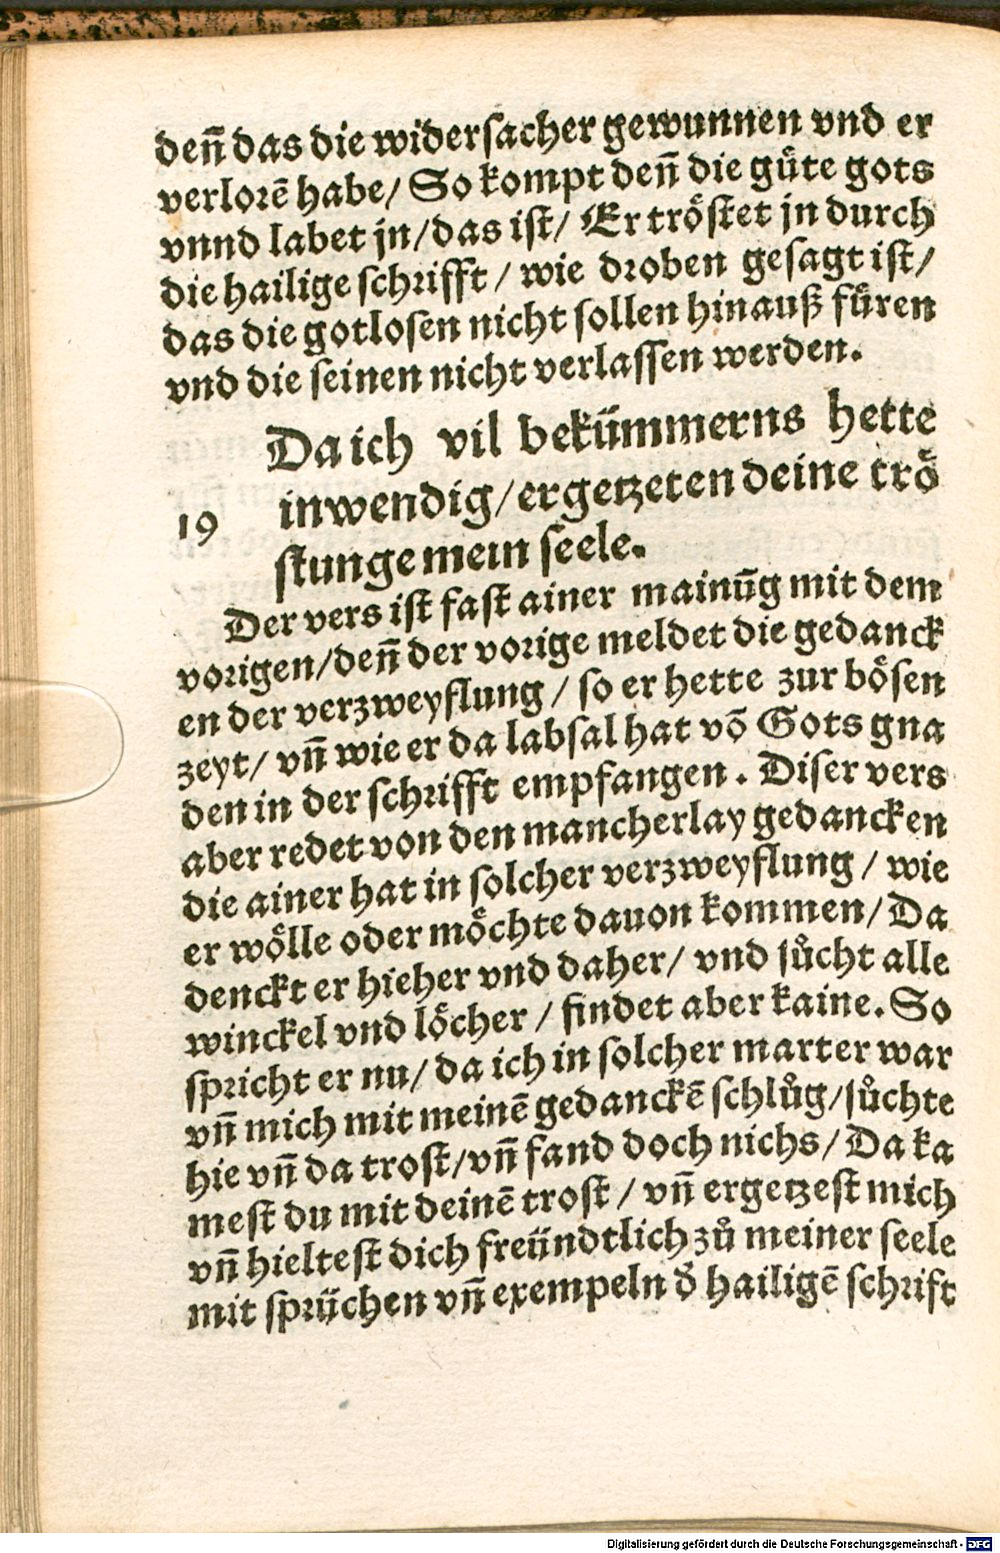 deñ das die widersacher gewunnen vnd er
verlorē habe/ So kompt deñ die gůte gots
vnnd labet jn/das ist/ Er tröstet jn durch
die hailige schrifft / wie droben gesagt ist/
das die gotlosen nicht sollen hinauß füren
vnd die seinen nicht verlassen werden.
Da ich vil bekümmerns hette
inwendig/ergetzeten deine trö
19 stunge mein seele.
Der vers ist fast ainer mainūg mit dem
vorigen/deñ der vorige meldet die gedanck
en der verzweyflung / so er hette zur bösen
zeyt/ vñ wie er da labsal hat vō Gots gna
den in der schrifft empfangen. Diser vers
aber redet von den mancherlay gedancken
die ainer hat in solcher verzweyflung / wie
er wölle oder möchte dauon kommen/ Da
denckt er hieher vnd daher/ vnd sůcht alle
winckel vnd löcher / findet aber kaine. So
spricht er nu/ da ich in solcher marter war
vñ mich mit meinē gedanckē schlůg/sůchte
hie vñ da trost/vñ fand doch nichs/ Da ka
mest du mit deinē trost / vñ ergetzest mich
vñ hieltest dich freündtlich zů meiner seele
mit sprüchen vñ exempeln ð hailigē schrift
Digitalisierung gefördert durch die Deutsche Forschungsgemeinschaft - DFG